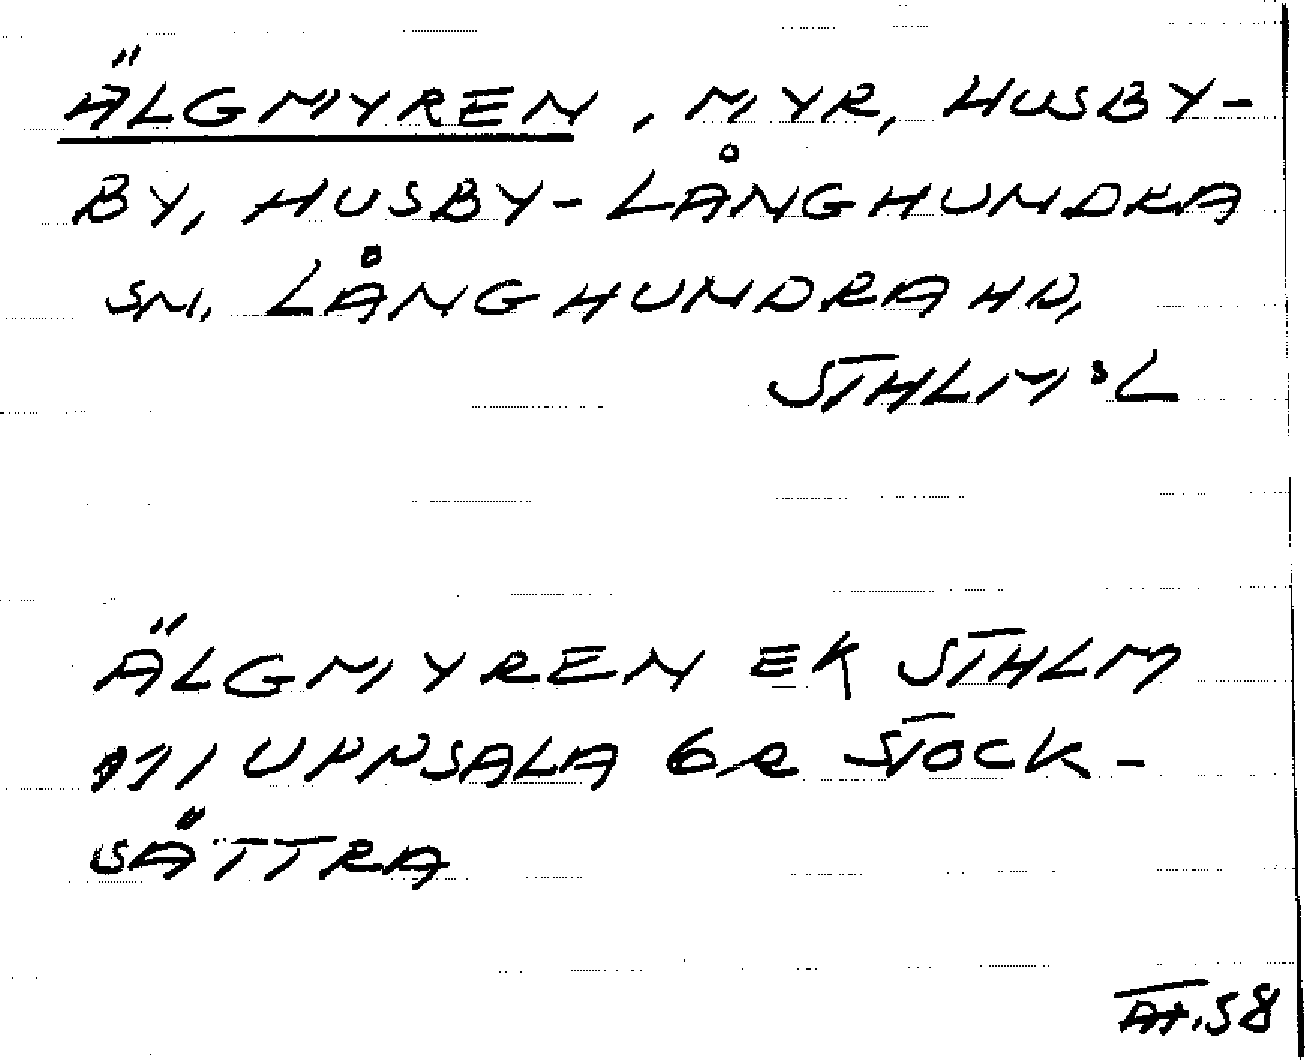 ÄLGMYREN, MYR, HUSBY-
BY, HUSBY-LÅNGHUNDRA
SN. LÅNGHUNDRA HD,
STHLM:S L
ÄLGMYREN EK STHLM
111 UPPSALA 6R STOCK-
SÄTTRA
58